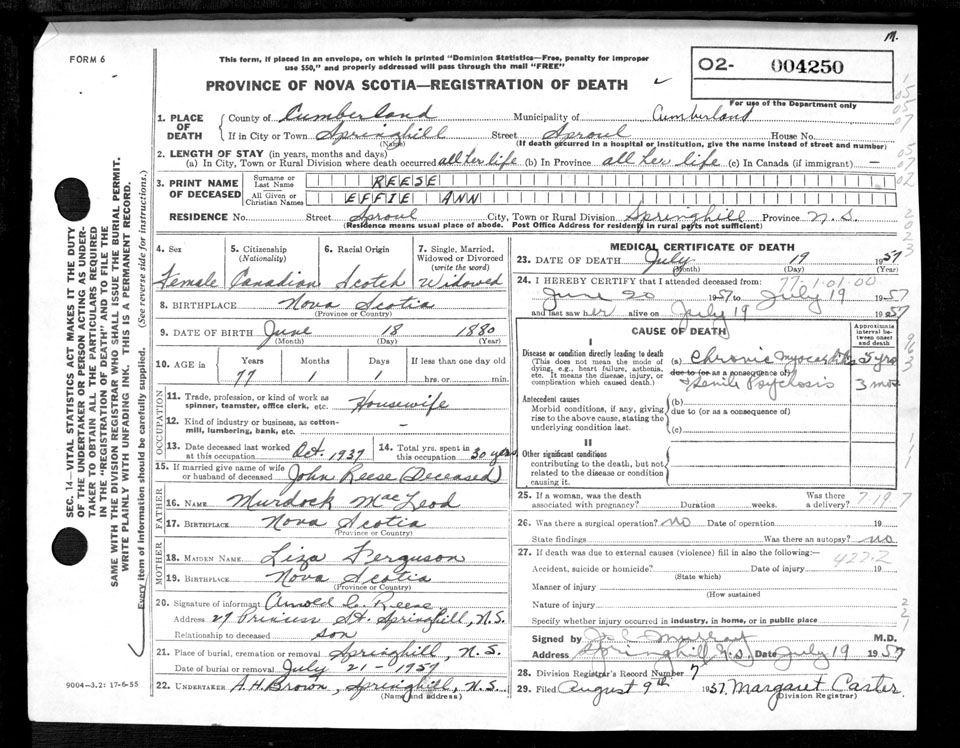 M.
FORM 6
This form, if placed in an envelope, on which is printed "Dominion Statistics—Free, penalty for improper
use $50," and properly addressed will pass through the mail "FREE"
PROVINCE OF NOVA SCOTIA—REGISTRATION OF DEATH
02- 004250
For use of the Department only
1. PLACE OF DEATH { County of Cumberland Municipality of Cumberland
If in City or Town Springhill Street Sproul House No.
(Name) (If death occurred in a hospital or institution, give the name instead of street and number)
2. LENGTH OF STAY (in years, months and days)
(a) In City, Town or Rural Division where death occurred all her life (b) In Province all her life (c) In Canada (if immigrant) —
3. PRINT NAME OF DECEASED { Surname or Last Name REESE
All Given or Christian Names EFFIE ANN
RESIDENCE No. Street Sproul City, Town or Rural Division Springhill Province N.S.
(Residence means usual place of abode. Post Office Address for residents in rural parts not sufficient)
4. Sex 5. Citizenship (Nationality) 6. Racial Origin 7. Single, Married, Widowed or Divorced (write the word)
Female Canadian Scotch Widowed
8. BIRTHPLACE Nova Scotia
(Province or Country)
9. DATE OF BIRTH June 18 1880
(Month) (Day) (Year)
10. AGE in Years Months Days If less than one day old
77 1 1 hrs. or min.
OCCUPATION
11. Trade, profession, or kind of work as spinner, teamster, office clerk, etc. Housewife
12. Kind of industry or business, as cotton-mill, lumbering, bank, etc. —
13. Date deceased last worked at this occupation Oct. 1937 14. Total yrs. spent in this occupation 30 years
15. If married give name of wife or husband of deceased John Reese (Deceased)
FATHER
16. NAME Murdock MacLeod
17. BIRTHPLACE Nova Scotia
(Province or Country)
MOTHER
18. MAIDEN NAME Liza Ferguson
19. BIRTHPLACE Nova Scotia
(Province or Country)
20. Signature of informant Arnold C. Reese
Address 27 Princess St. Springhill, N.S.
Relationship to deceased son
21. Place of burial, cremation or removal Springhill, N.S.
Date of burial or removal July 21 - 1957
22. UNDERTAKER A.H. Brown, Springhill, N.S.
(Name and address)
MEDICAL CERTIFICATE OF DEATH
23. DATE OF DEATH July 19 1957
(Month) (Day) (Year)
24. I HEREBY CERTIFY that I attended deceased from:
77.1.01.00
June 20 1957 to July 19 1957
and last saw her alive on July 19 1957
CAUSE OF DEATH
Approximate interval between onset and death
I
Disease or condition directly leading to death
(This does not mean the mode of dying, e.g., heart failure, asthenia, etc. It means the disease, injury, or complication which caused death.)
(a) Chronic Myocarditis 5 yrs
due to (or as a consequence of)
& Senile Psychosis 3 mos
Antecedent causes
Morbid conditions, if any, giving rise to the above cause, stating the underlying condition last.
(b)
due to (or as a consequence of)
(c)
II
Other significant conditions
contributing to the death, but not related to the disease or condition causing it.
25. If a woman, was the death associated with pregnancy? Duration weeks. Was there a delivery?
7-19-7
26. Was there a surgical operation? no Date of operation 19
State findings Was there an autopsy? no
27. If death was due to external causes (violence) fill in also the following:—
422.2
Accident, suicide or homicide? Date of injury 19
(State which)
Manner of injury
(How sustained
Nature of injury
Specify whether injury occurred in industry, in home, or in public place
Signed by Murray M.D.
Address Springhill N.S. Date July 19 1957
28. Division Registrar's Record Number 7
29. Filed August 9th 1957. Margaret Carter.
(Division Registrar)
9004-3.2: 17-6-55
SEC. 14—VITAL STATISTICS ACT MAKES IT THE DUTY
OF THE UNDERTAKER OR PERSON ACTING AS UNDER-
TAKER TO OBTAIN ALL THE PARTICULARS REQUIRED
IN THE "REGISTRATION OF DEATH" AND TO FILE THE
SAME WITH THE DIVISION REGISTRAR WHO SHALL ISSUE THE BURIAL PERMIT.
WRITE PLAINLY WITH UNFADING INK. THIS IS A PERMANENT RECORD.
Every item of information should be carefully supplied. (See reverse side for instructions.)